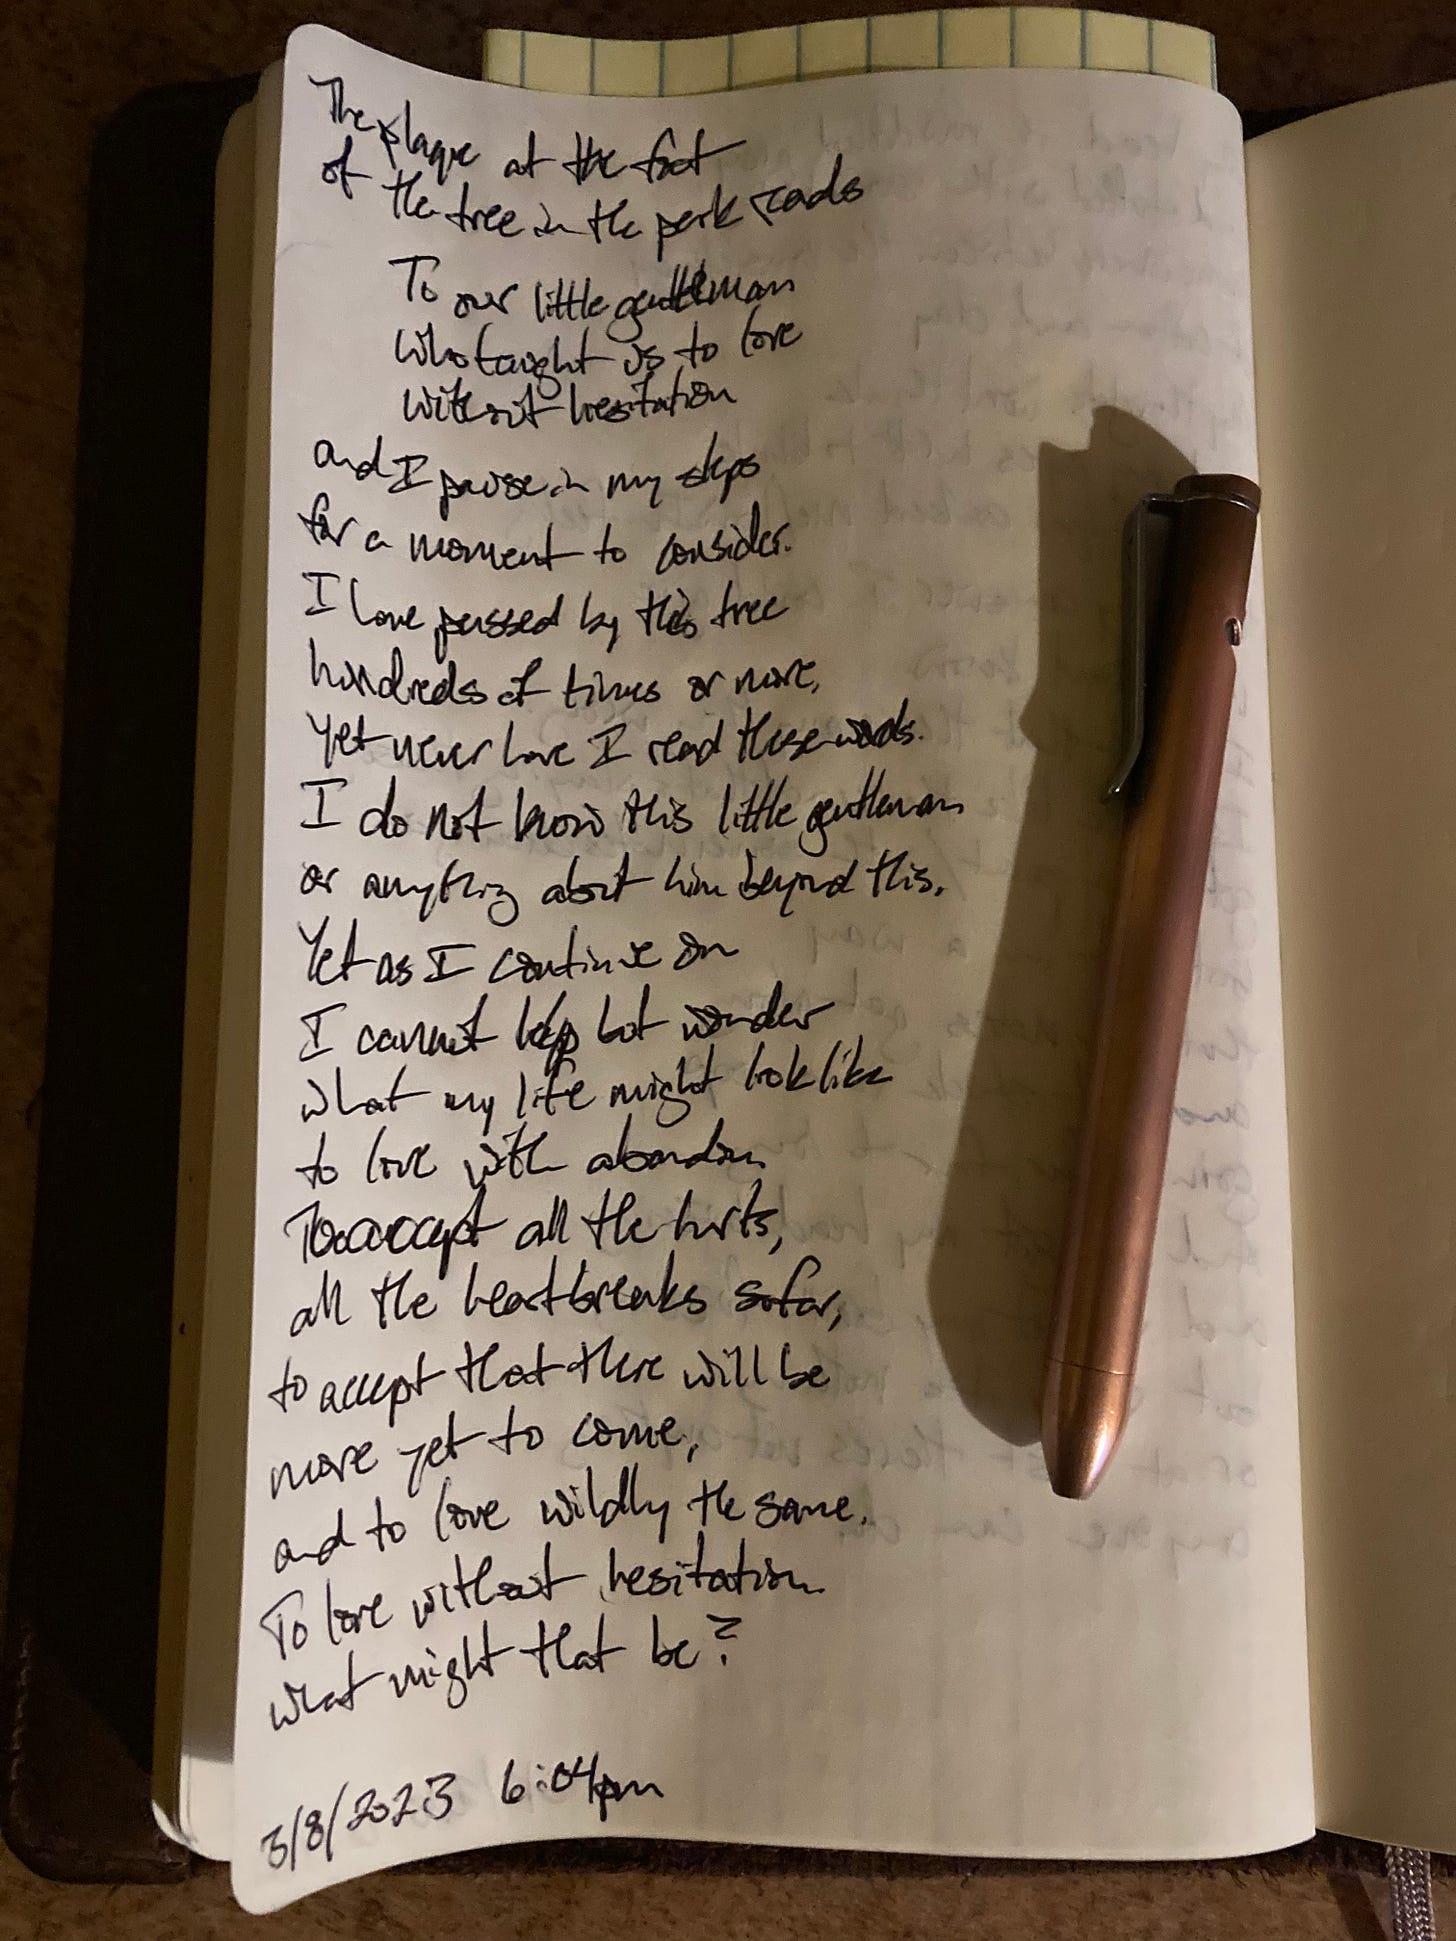 The plaque at the foot
of the tree in the park reads
To our little gentleman
who taught us to love
without hesitation
and I pause in my steps
for a moment to consider.
I have passed by this tree
hundreds of times or more,
Yet never have I read these words.
I do not know this little gentleman
or anything about him beyond this.
Yet as I continue on
I cannot help but wonder
what my life might look like
to love with abandon.
To accept all the hurts,
all the heartbreaks so far,
to accept that there will be
more yet to come,
and to love wildly the same.
To love without hesitation
what might that be?
3/8/2023 6:04pm